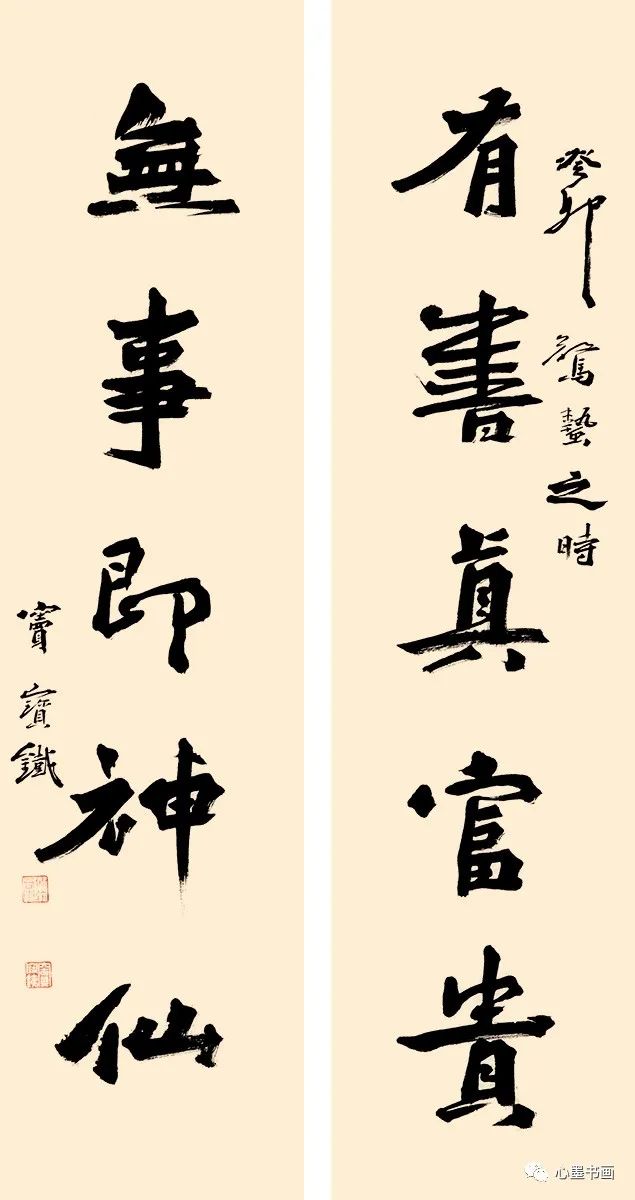 癸卯驚蟄之時
有書真富貴
無事即神仙
竇寶鐵
心墨书画